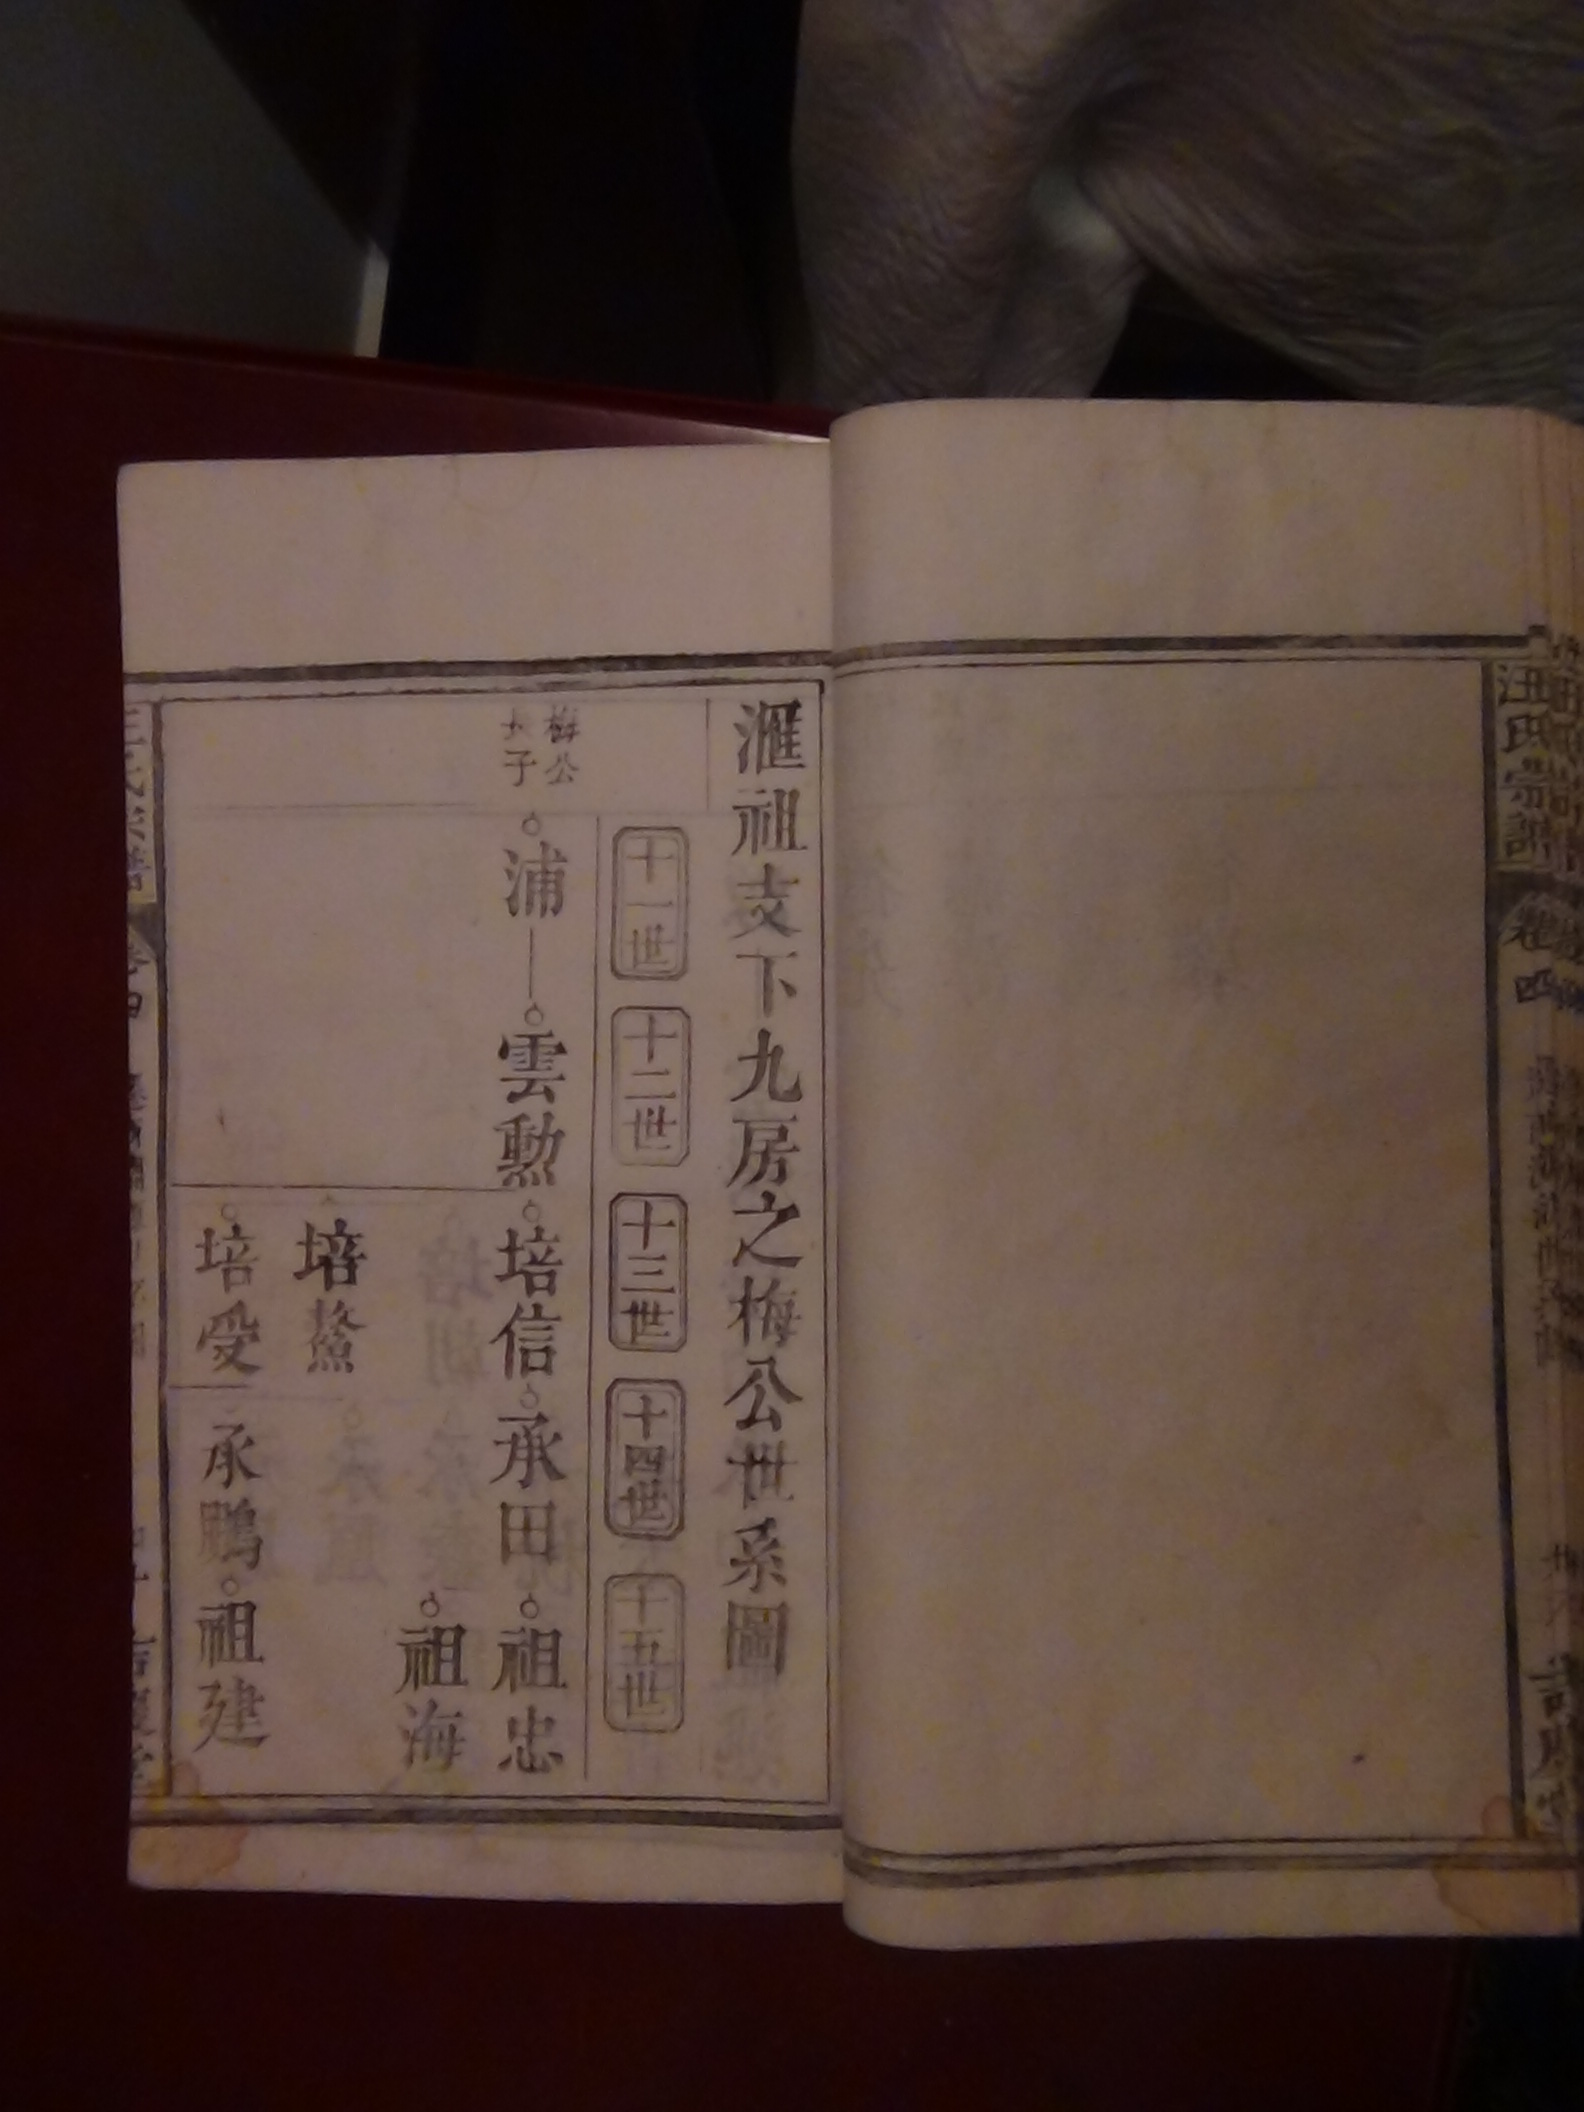 汪氏宗譜
卷四
滙祖支下九房之梅公世系圖
十一世
十二世
十三世
十四世
十五世
梅公
長子
浦
雲勲
培信
承田
祖忠
祖海
培鰲
培受
承鵬
祖建